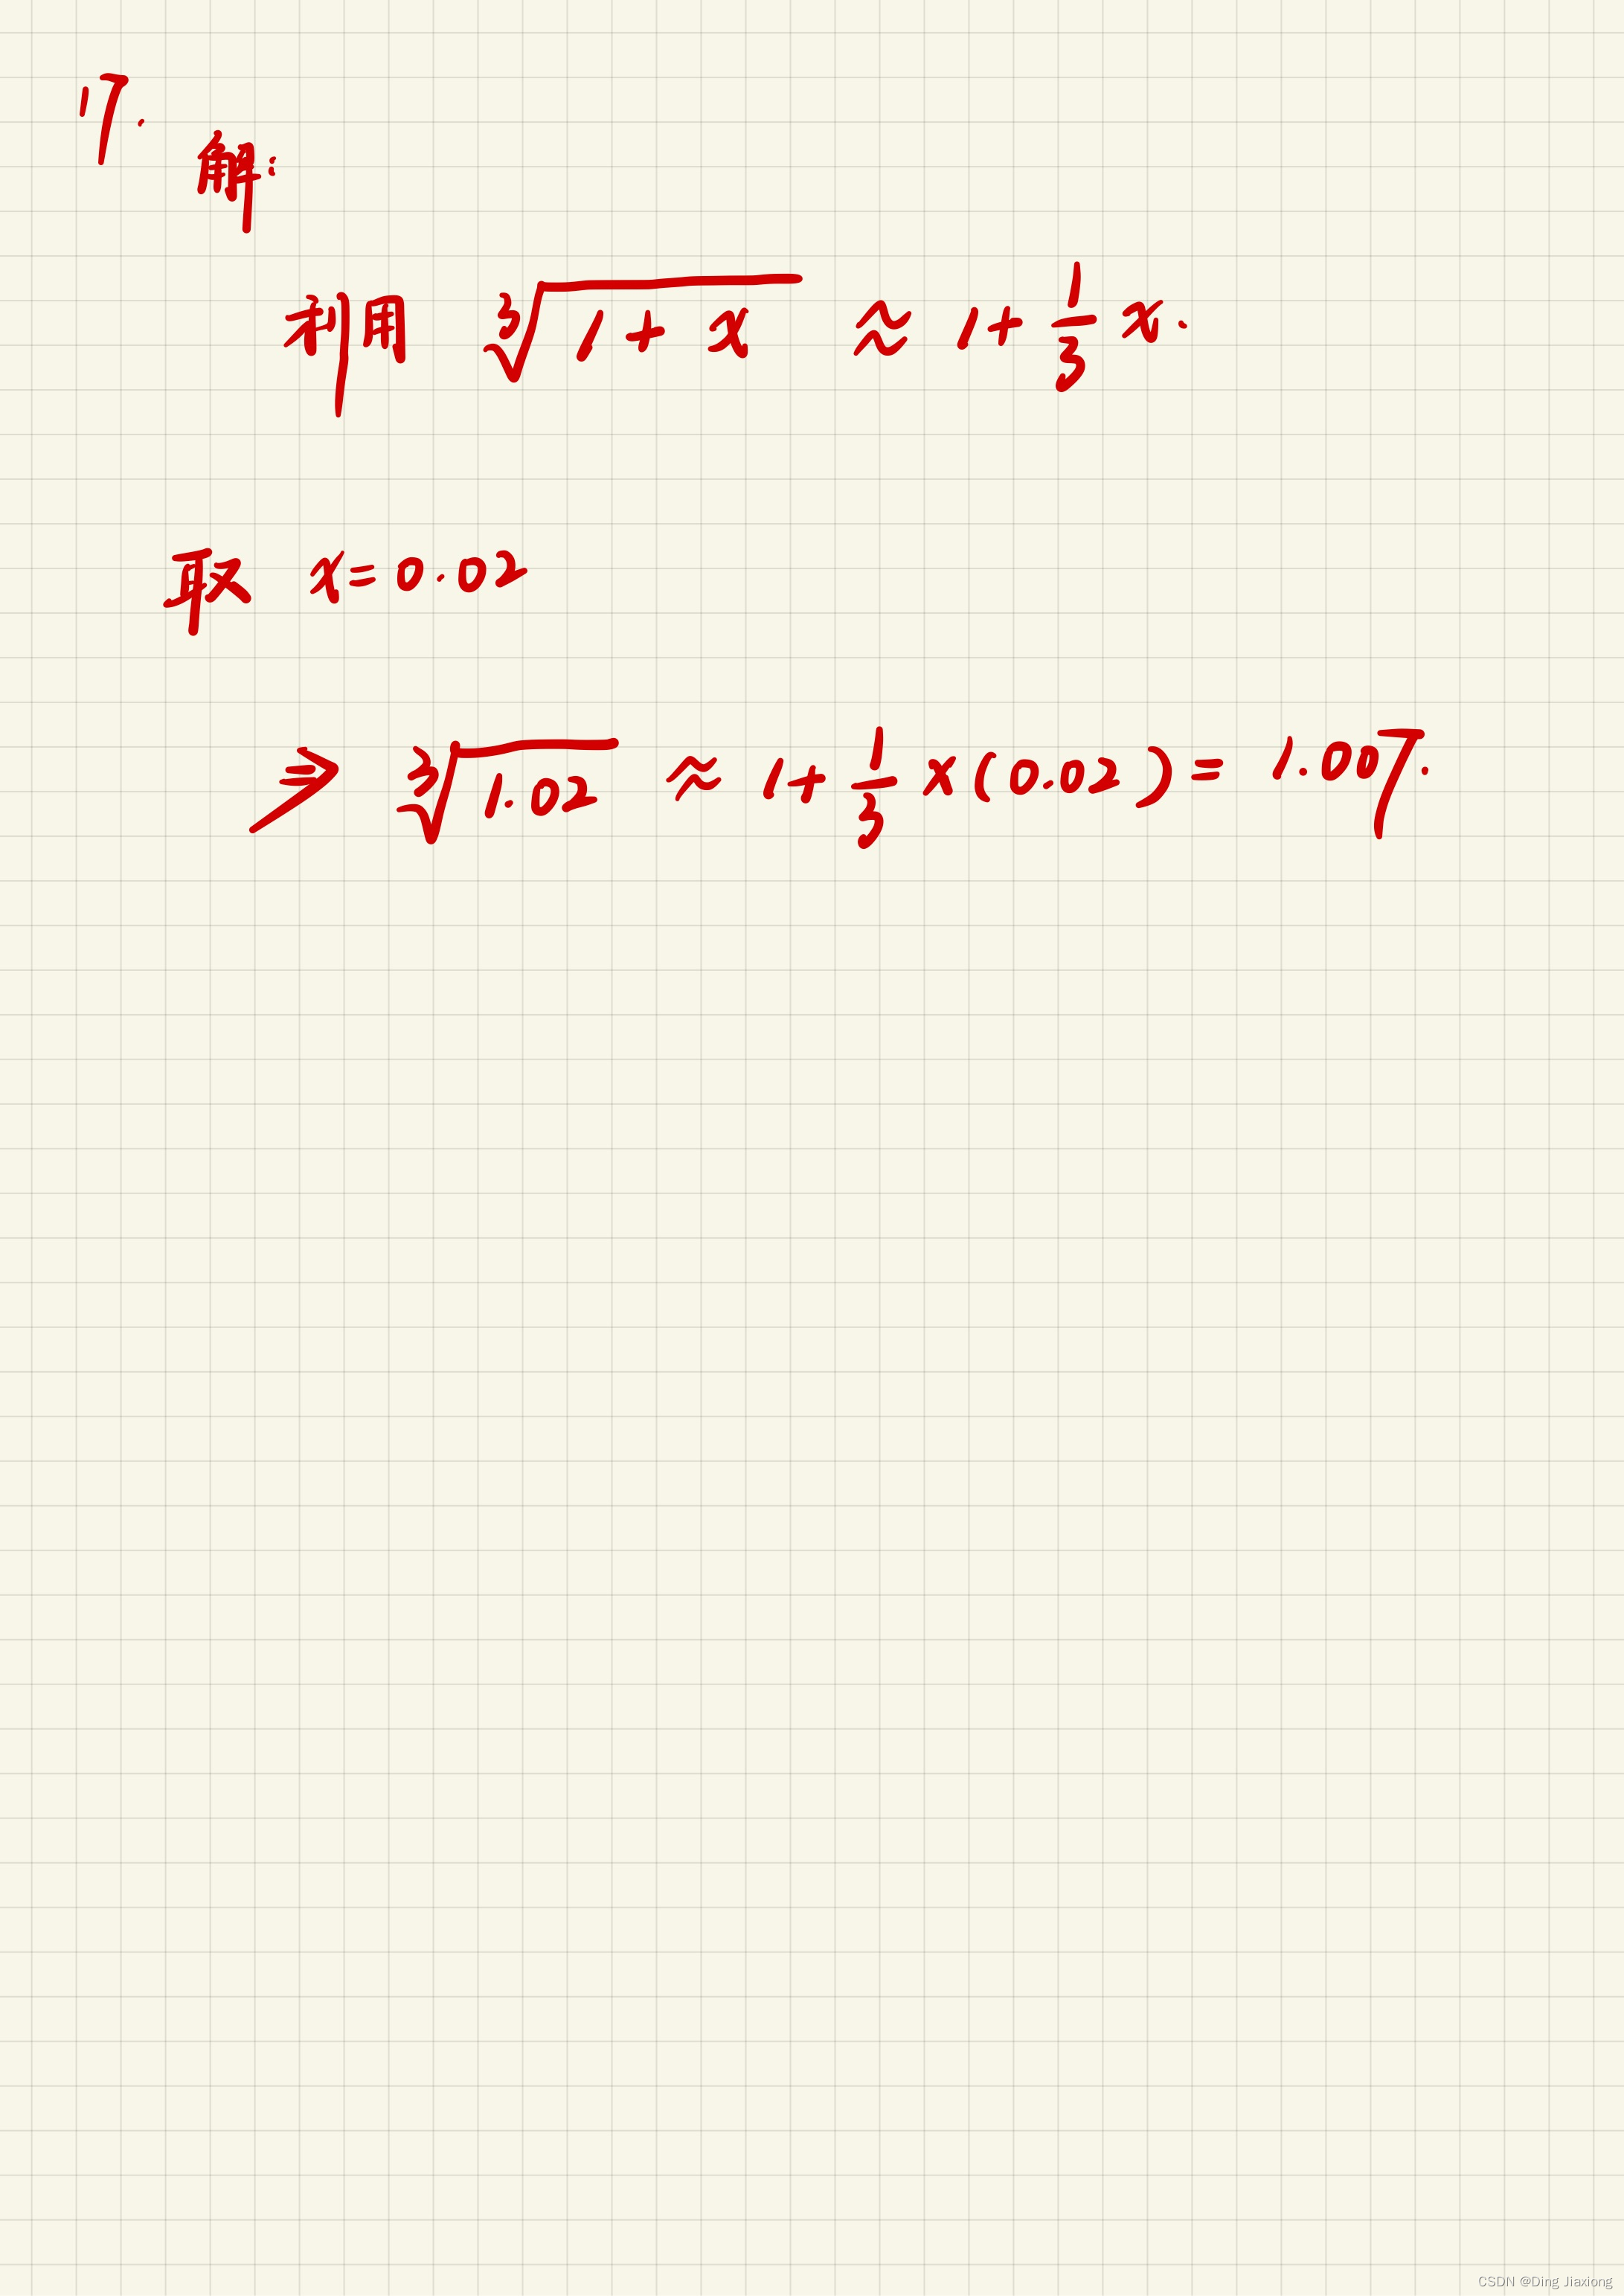 17.
解:
利用 ∛(1+x) ≈ 1+1/3 x.
取 x=0.02
⇒ ∛1.02 ≈ 1+1/3×(0.02)=1.007.
CSDN @Ding Jiaxiong